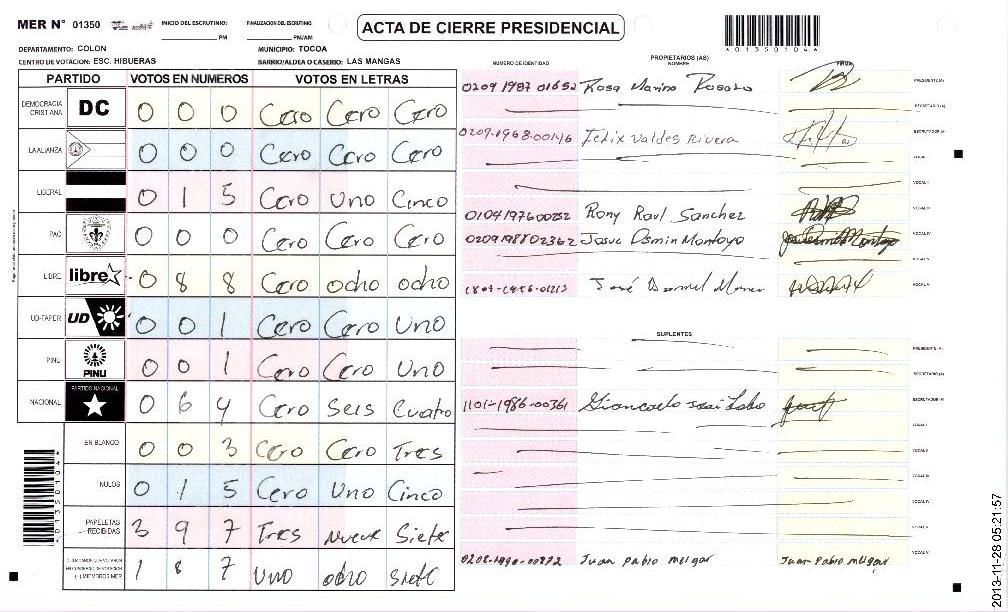 MER N° 01350
INICIO DEL ESCRUTINIO: PM
FINALIZACION DEL ESCRUTINIO: PM/AM
ACTA DE CIERRE PRESIDENCIAL
A013501044
DEPARTAMENTO: COLON
MUNICIPIO: TOCOA
CENTRO DE VOTACION: ESC. HIBUERAS
BARRIO/ALDEA O CASERIO: LAS MANGAS
PARTIDO VOTOS EN NUMEROS VOTOS EN LETRAS
DEMOCRACIA CRISTIANA DC 0 0 0 Cero Cero Cero
LA ALIANZA 0 0 0 Cero Cero Cero
LIBERAL 0 1 5 Cero Uno Cinco
PAC 0 0 0 Cero Cero Cero
LIBRE libre 0 8 8 Cero ocho ocho
UD-FAPER UD 0 0 1 Cero Cero Uno
PINU PINU 0 0 1 Cero Cero Uno
NACIONAL PARTIDO NACIONAL 0 6 4 Cero Seis Cuatro
EN BLANCO 0 0 3 Cero Cero Tres
NULOS 0 1 5 Cero Uno Cinco
PAPELETAS RECIBIDAS 3 9 7 Tres Nueve Siete
(+) MIEMBROS MER 1 8 7 Uno ocho siete
NUMERO DE IDENTIDAD
PROPIETARIOS (AS)
NOMBRE
FIRMA
0209 1987 01652 Rosa Marina PRESIDENTE (A)
SECRETARIO (A)
0209-1968-00146 Felix Valdes Rivera ESCRUTADOR (A)
VOCAL I
VOCAL II
0104197600252 Rony Raul Sanchez VOCAL III
0209198802362 Josue Osmin Montoya VOCAL IV
VOCAL V
José VOCAL VI
SUPLENTES
PRESIDENTE (A)
SECRETARIO (A)
1101-1986-00361 ESCRUTADOR (A)
VOCAL I
VOCAL II
VOCAL III
VOCAL IV
VOCAL V
0208-1990-00872 Juan pablo melgar Juan Pablo melgar VOCAL VI
2013-11-28 05:21:57